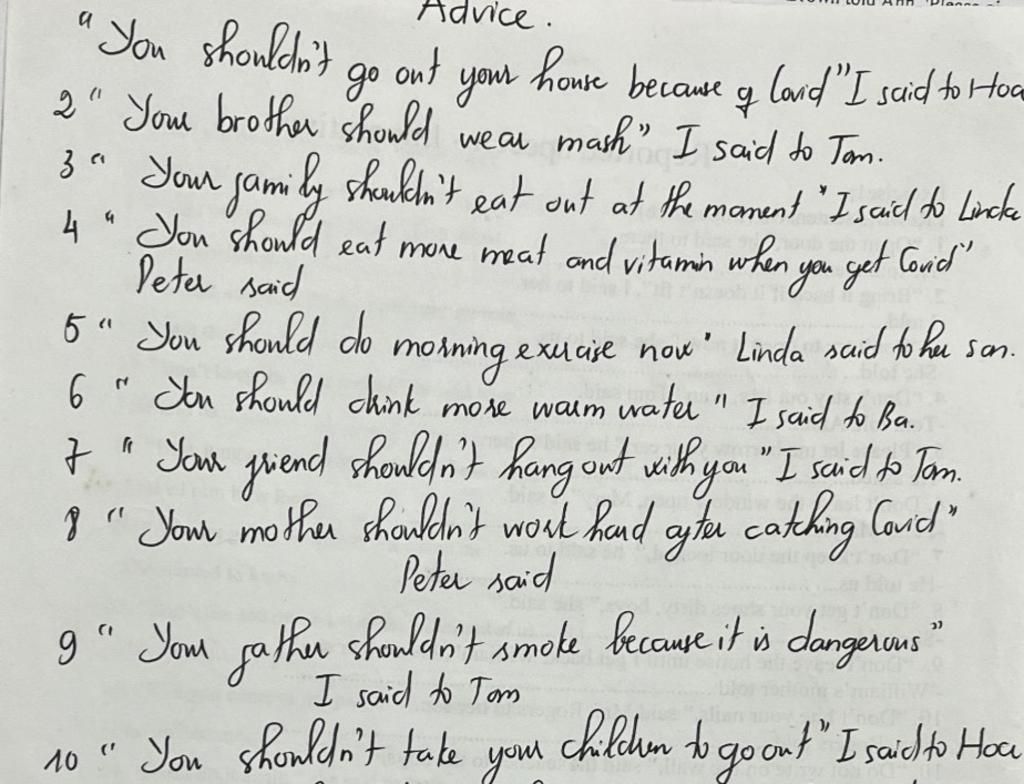 Advice.
"You shouldn't go out your house because of Covid" I said to Hoa
2 "Your brother should wear mask" I said to Tom.
3 "Your family shouldn't eat out at the moment" I said to Linda
4 "You should eat more meat and vitamin when you get Covid"
Peter said
5 "You should do morning exercise now" Linda said to her son.
6 "You should drink more warm water" I said to Ba.
7 "Your friend shouldn't hang out with you" I said to Tom.
8 "Your mother shouldn't work hard after catching Covid"
Peter said
9 "Your father shouldn't smoke because it is dangerous"
I said to Tom
10 "You shouldn't take your children to go out" I said to Hoa